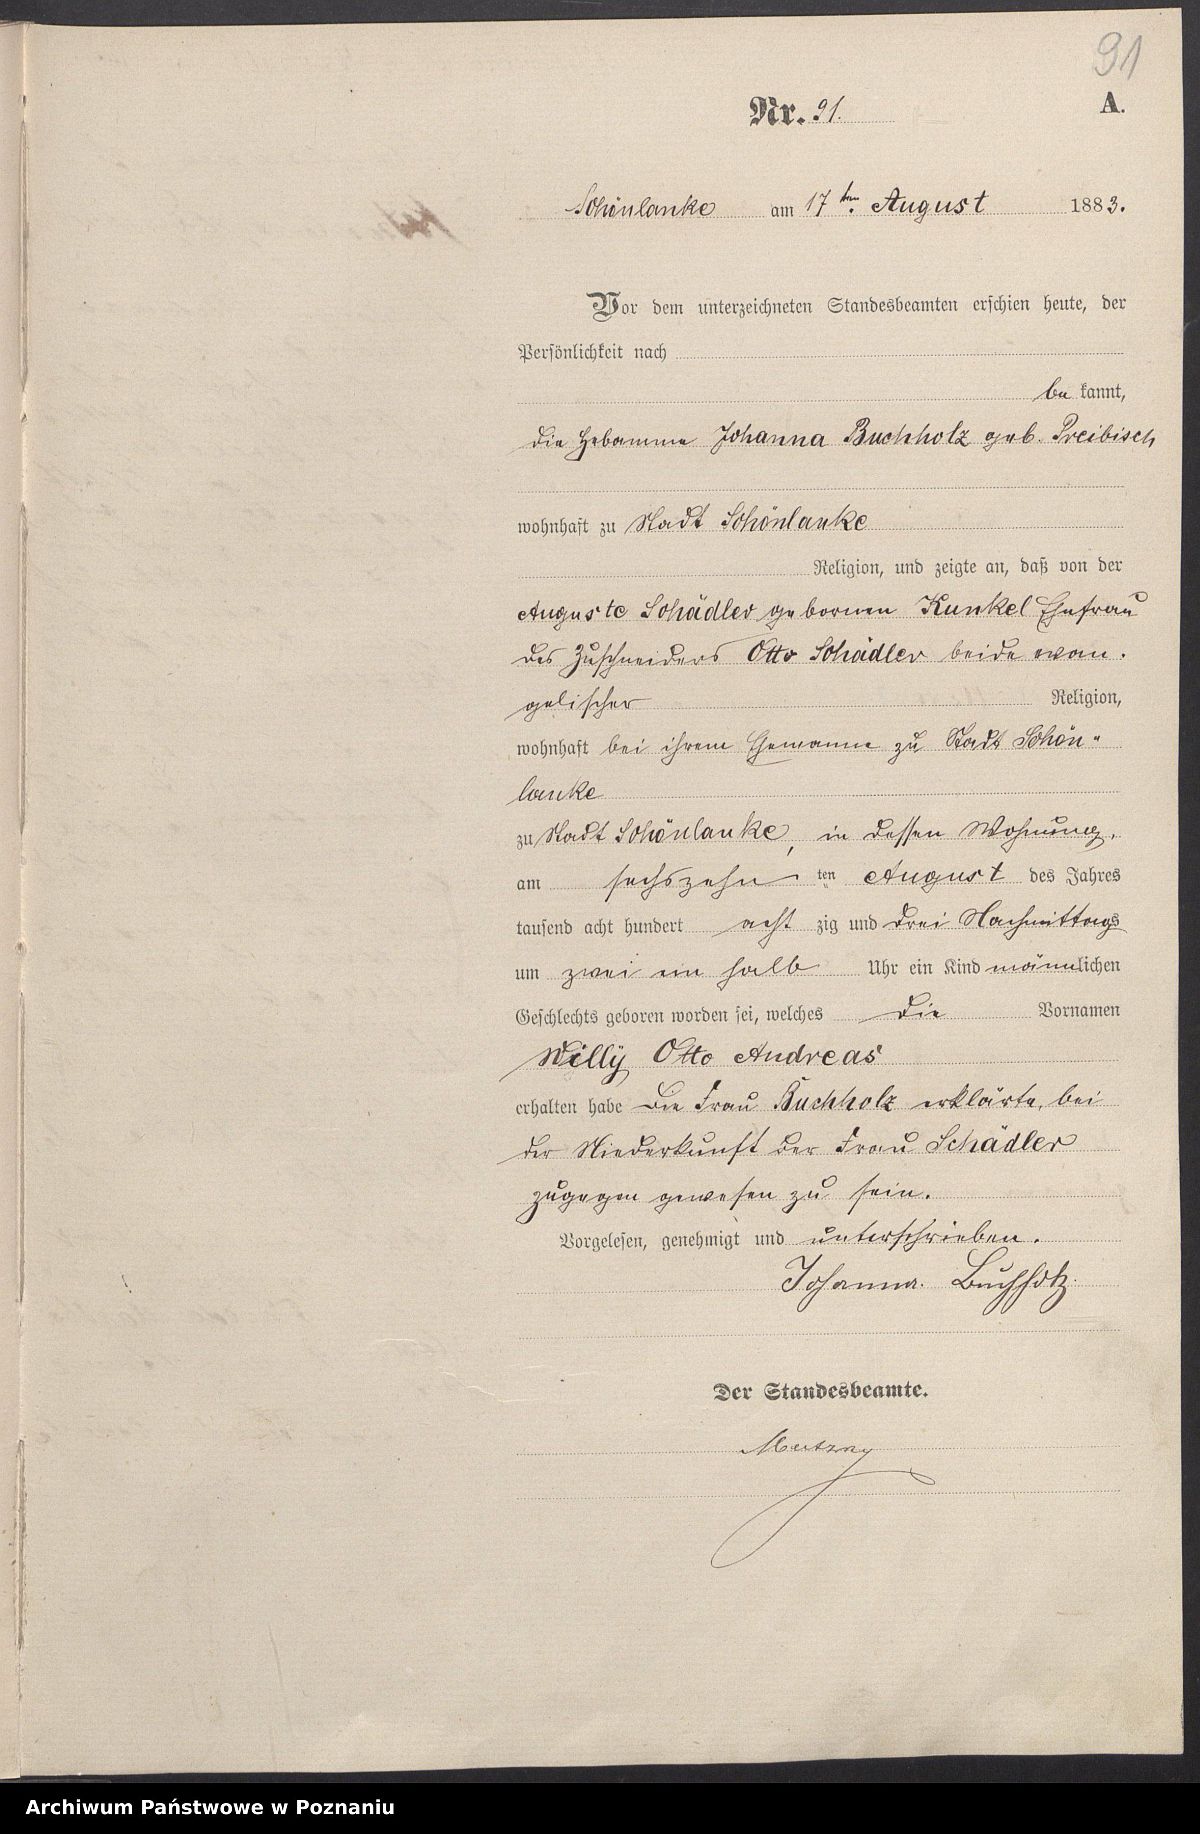 91
A.
Nr. 91.
Schönlanke am 17ten August 1883.
Vor dem unterzeichneten Standesbeamten erschien heute, der
Persönlichkeit nach
be kannt,
die Hebamme Johanna Buchholz geb. Preibisch
wohnhaft zu Stadt Schönlanke
Religion, und zeigte an, daß von der
Auguste Schädler gebornen Kunkel Ehefrau
des Zuschneiders Otto Schädler beide evan-
gelischer Religion,
wohnhaft bei ihrem Ehemanne zu Stadt Schön-
lanke
zu Stadt Schönlanke, in dessen Wohnung,
am sechszehn ten August des Jahres
tausend acht hundert acht zig und drei Nachmittags
um zwei ein halb Uhr ein Kind männlichen
Geschlechts geboren worden sei, welches die Vornamen
Willy Otto Andreas
erhalten habe Die Frau Buchholz erklärte, bei
der Niederkunft der Frau Schädler
zugegen gewesen zu sein.
Vorgelesen, genehmigt und unterschrieben.
Johanna Buchholz.
Der Standesbeamte.
Archiwum Państwowe w Poznaniu